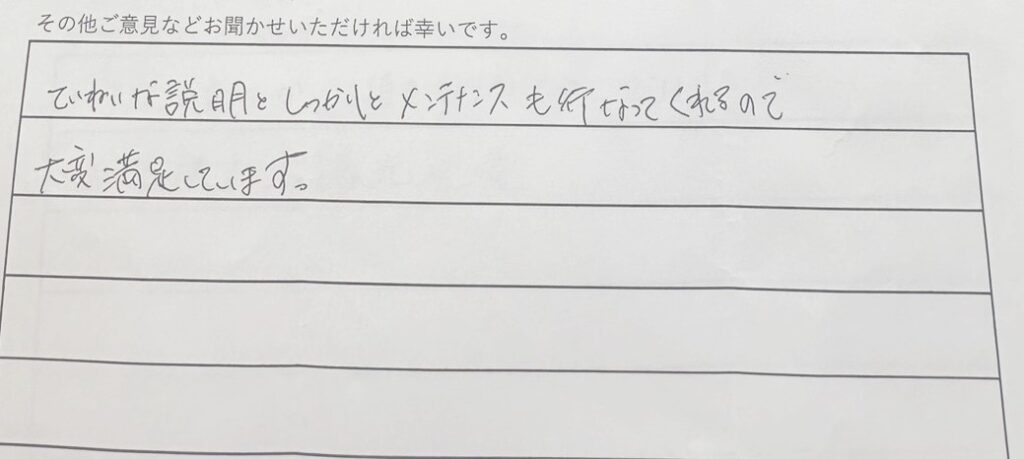 その他ご意見などお聞かせいただければ幸いです。
ていねいな説明としっかりとメンテナンスも行なってくれるので
大変満足しています。